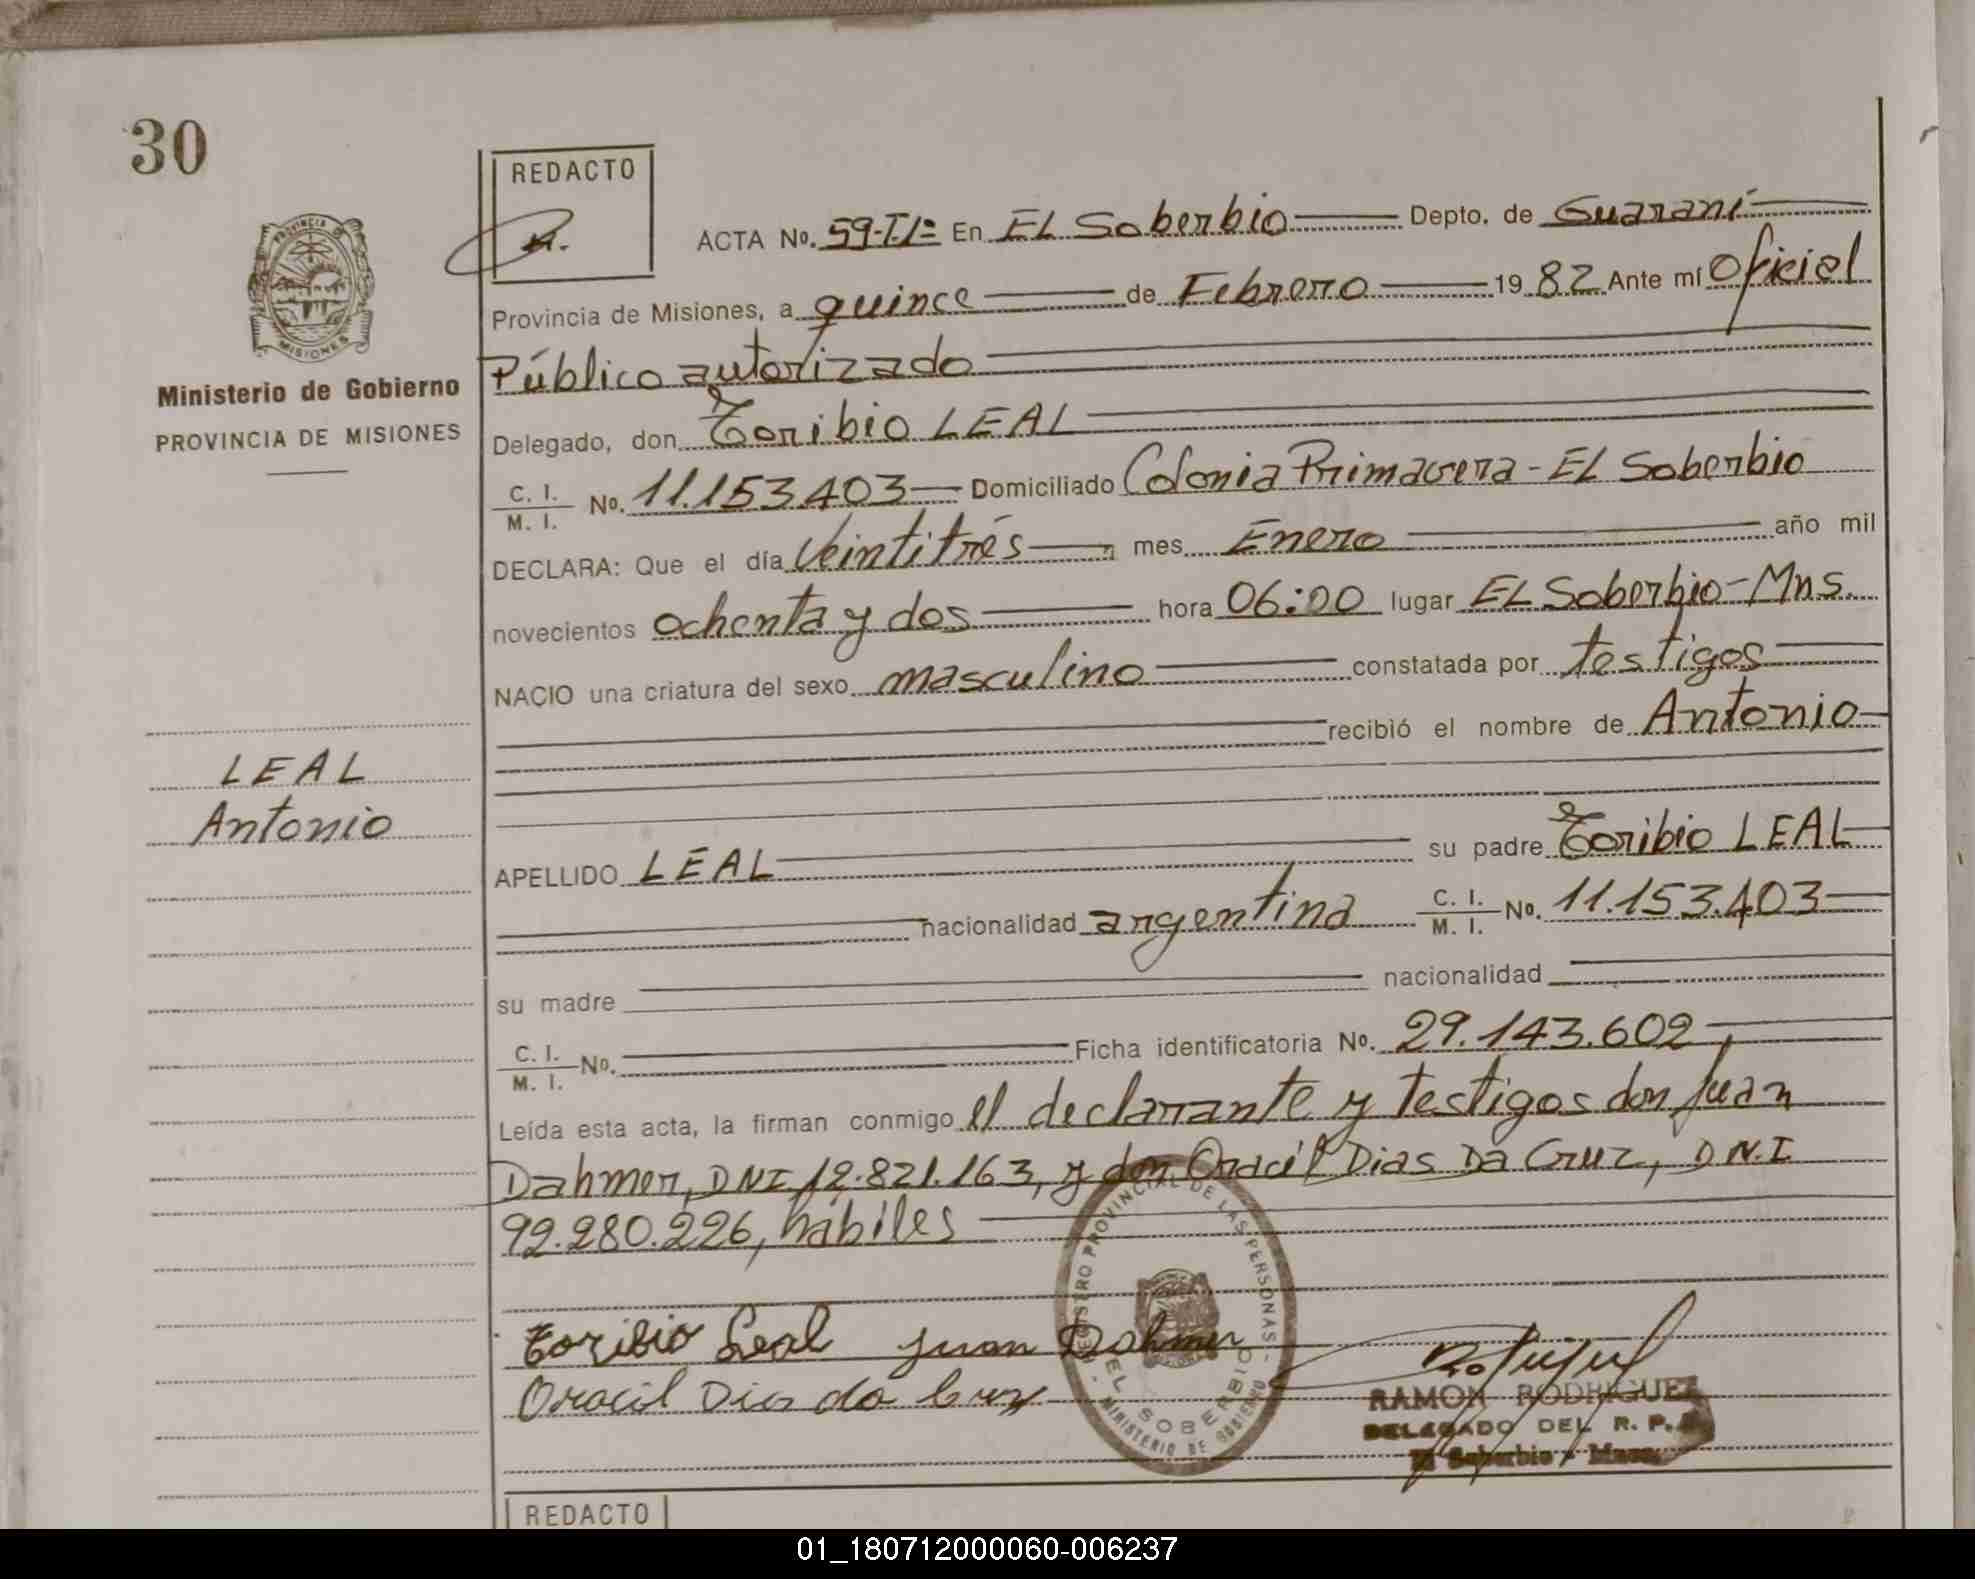 30
REDACTO
PROVINCIA DE
MISIONES
Ministerio de Gobierno
PROVINCIA DE MISIONES
ACTA No. 59-T.1º En EL Soberbio Depto. de Guaraní
Provincia de Misiones, a quince de Febrero 1982 Ante mí Oficial
Público autorizado
Delegado, don Toribio LEAL
C. I. / M. I. No. 11.153.403 Domiciliado Colonia Primavera - EL Soberbio
DECLARA: Que el día Veintitrés mes Enero año mil
novecientos ochenta y dos hora 06:00 lugar EL Soberbio-Mns.
NACIO una criatura del sexo masculino constatada por testigos
recibió el nombre de Antonio
LEAL
Antonio
APELLIDO LEAL su padre Toribio LEAL
nacionalidad argentina C. I. / M. I. No. 11.153.403
su madre nacionalidad
C. I. / M. I. No. Ficha identificatoria No. 29.143.602
Leída esta acta, la firman conmigo el declarante y testigos don Juan
Dahmer, DNI 12.821.163, y don Oracil Dias Da Cruz, D.N.I
92.280.226, hábiles
REGISTRO PROVINCIAL DE LAS PERSONAS
EL SOBERBIO
MINISTERIO DE GOBIERNO
Toribio Leal Juan Dahmer
Oracil Dias da Cruz
RAMON RODRIGUEZ
DELEGADO DEL R. P.
El Soberbio - Mnes.
REDACTO
01_180712000060-006237